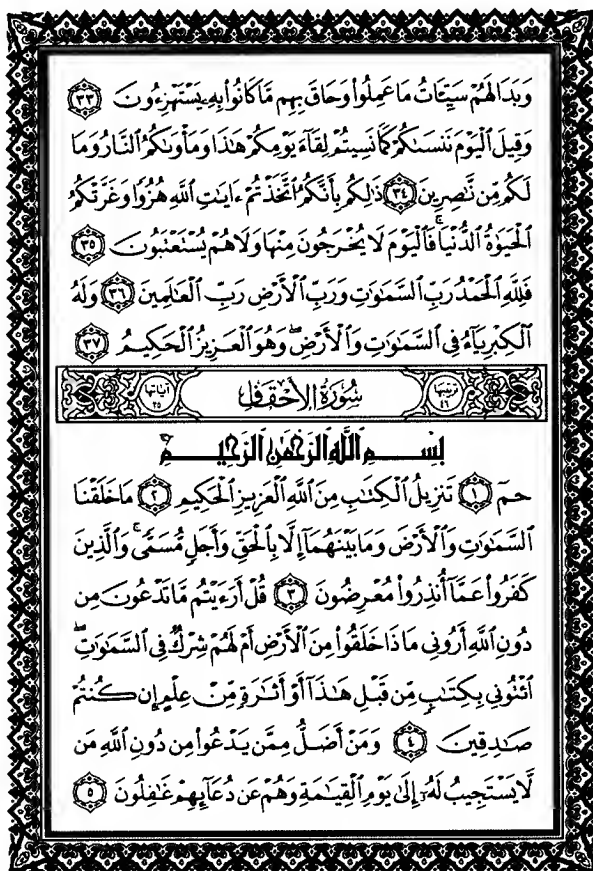 وَبَدَا لَهُمْ سَيِّـَٔاتُ مَا عَمِلُوا۟ وَحَاقَ بِهِم مَّا كَانُوا۟ بِهِۦ يَسْتَهْزِءُونَ ٣٣
وَقِيلَ ٱلْيَوْمَ نَنسَىٰكُمْ كَمَا نَسِيتُمْ لِقَآءَ يَوْمِكُمْ هَٰذَا وَمَأْوَىٰكُمُ ٱلنَّارُ وَمَا
لَكُم مِّن نَّـٰصِرِينَ ٣٤ ذَٰلِكُم بِأَنَّكُمُ ٱتَّخَذْتُمْ ءَايَـٰتِ ٱللَّهِ هُزُوًا وَغَرَّتْكُمُ
ٱلْحَيَوٰةُ ٱلدُّنْيَا ۚ فَٱلْيَوْمَ لَا يُخْرَجُونَ مِنْهَا وَلَا هُمْ يُسْتَعْتَبُونَ ٣٥
فَلِلَّهِ ٱلْحَمْدُ رَبِّ ٱلسَّمَـٰوَٰتِ وَرَبِّ ٱلْأَرْضِ رَبِّ ٱلْعَـٰلَمِينَ ٣٦ وَلَهُ
ٱلْكِبْرِيَآءُ فِى ٱلسَّمَـٰوَٰتِ وَٱلْأَرْضِ ۖ وَهُوَ ٱلْعَزِيزُ ٱلْحَكِيمُ ٣٧
ترتيبها ٤٦ سُورَةُ الأَحْقَافِ آياتها ٣٥
بِسْمِ ٱللَّهِ ٱلرَّحْمَـٰنِ ٱلرَّحِيمِ
حمٓ ١ تَنزِيلُ ٱلْكِتَـٰبِ مِنَ ٱللَّهِ ٱلْعَزِيزِ ٱلْحَكِيمِ ٢ مَا خَلَقْنَا
ٱلسَّمَـٰوَٰتِ وَٱلْأَرْضَ وَمَا بَيْنَهُمَآ إِلَّا بِٱلْحَقِّ وَأَجَلٍ مُّسَمًّى ۚ وَٱلَّذِينَ
كَفَرُوا۟ عَمَّآ أُنذِرُوا۟ مُعْرِضُونَ ٣ قُلْ أَرَءَيْتُم مَّا تَدْعُونَ مِن
دُونِ ٱللَّهِ أَرُونِى مَاذَا خَلَقُوا۟ مِنَ ٱلْأَرْضِ أَمْ لَهُمْ شِرْكٌ فِى ٱلسَّمَـٰوَٰتِ ۖ
ٱئْتُونِى بِكِتَـٰبٍ مِّن قَبْلِ هَـٰذَآ أَوْ أَثَـٰرَةٍ مِّنْ عِلْمٍ إِن كُنتُمْ
صَـٰدِقِينَ ٤ وَمَنْ أَضَلُّ مِمَّن يَدْعُوا۟ مِن دُونِ ٱللَّهِ مَن
لَّا يَسْتَجِيبُ لَهُۥٓ إِلَىٰ يَوْمِ ٱلْقِيَـٰمَةِ وَهُمْ عَن دُعَآئِهِمْ غَـٰفِلُونَ ٥